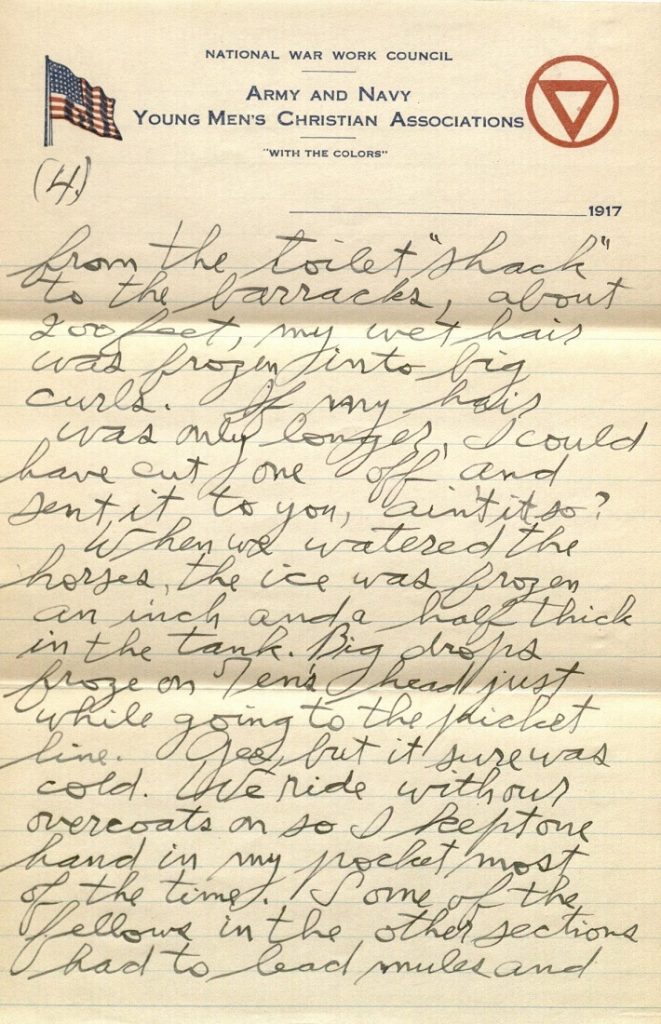 NATIONAL WAR WORK COUNCIL
ARMY AND NAVY
YOUNG MEN'S CHRISTIAN ASSOCIATIONS
"WITH THE COLORS"
(4.)
1917
from the toilet "shack"
to the barracks, about
200 feet, my wet hair
was frozen into big
curls. If my hair
was only longer, I could
have cut one off and
sent it to you, ain't it so?
When we watered the
horses, the ice was frozen
an inch and a half thick
in the tank. Big drops
froze on head just
while going to the picket
line. Gee, but it sure was
cold. We ride without
overcoats on so I kept one
hand in my pocket most
of the time. Some of the
fellows in the other sections
had to lead mules and